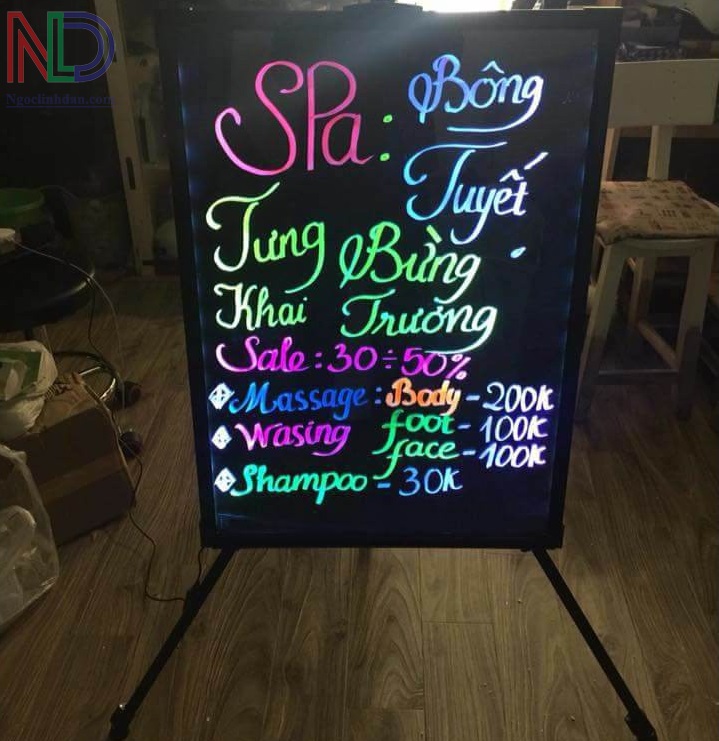 NLD
Ngoclinhdan.com
SPa : Bông
Tuyết
Tưng Bừng
Khai Trương
Sale : 30 ÷ 50%
Massage : Body - 200K
Wasing foot - 100K
face - 100K
Shampoo - 30K